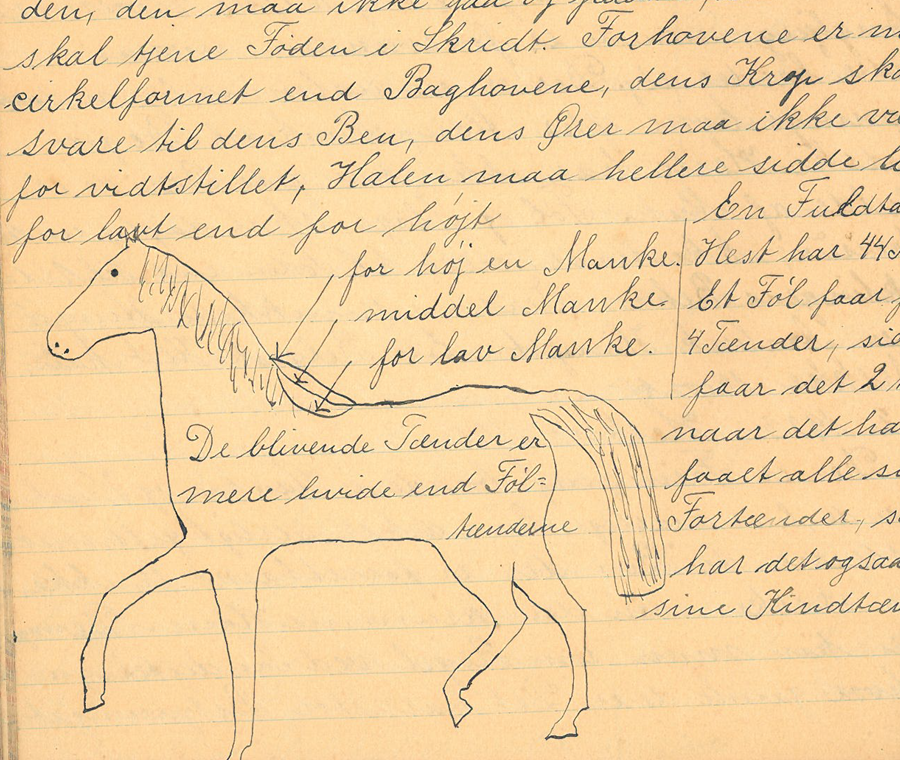 den, den maa ikke
skal tjene Føden i Skridt. Forhovene er
cirkelformet end Baghovene, dens Krop
svare til dens Ben, dens Ører maa ikke
for vidtstillet, Halen maa hellere sidde
for lavt end for højt
for høj en Manke.
middel Manke.
for lav Manke.
De blivende Tænder er
mere hvide end Føl=
tænderne
En
Hest har 44
Et Føl faar
4 Tænder,
faar det 2
naar det
faaet alle
Fortænder,
har det ogsaa
sine